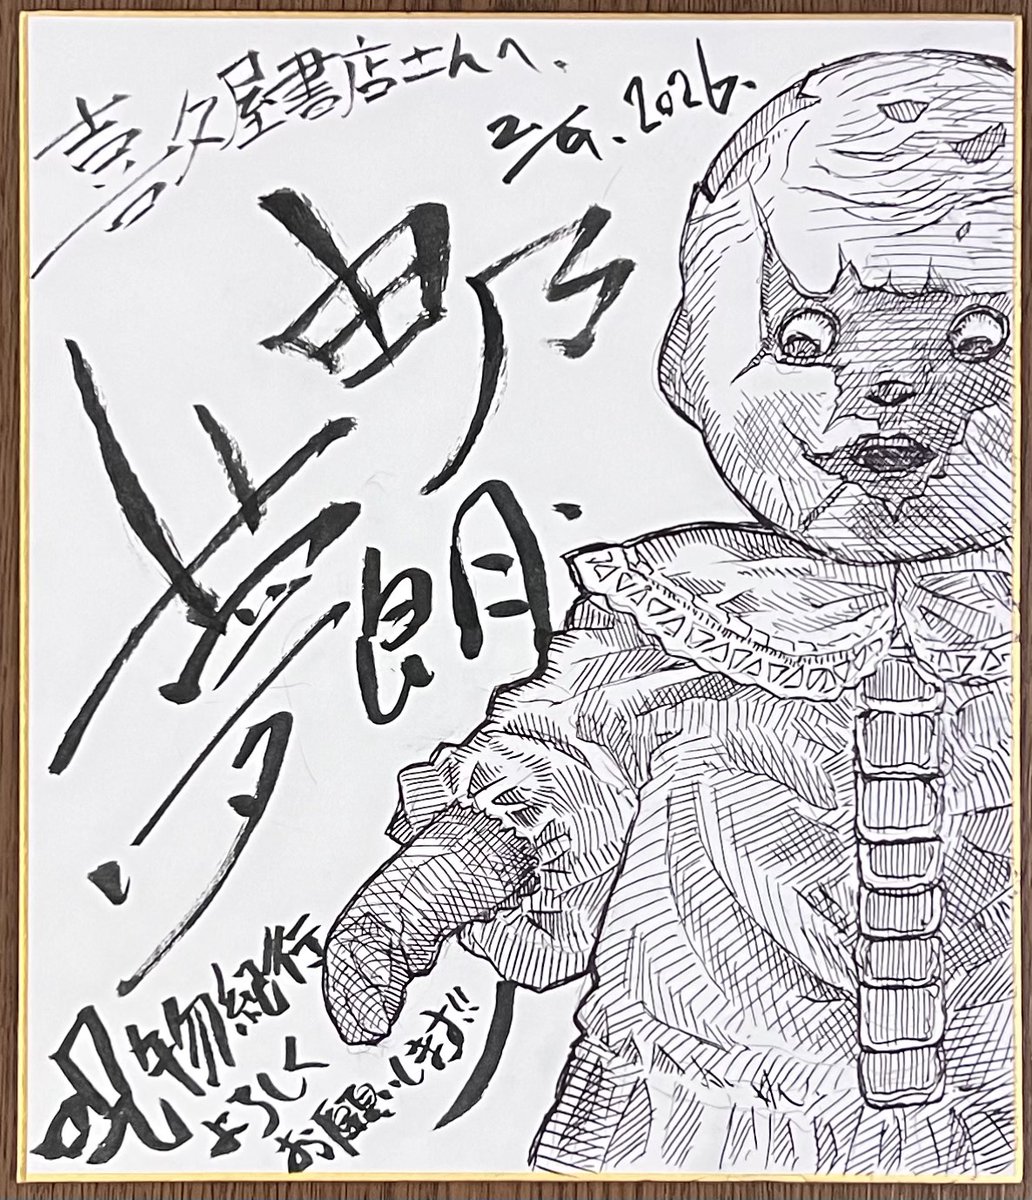 喜久屋書店さんへ.
2/9. 2026.
由乃
夢朗
呪物紀行
よろしく
お願いします!!